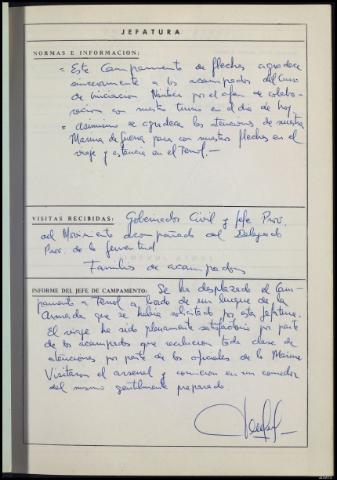 JEFATURA
NORMAS E INFORMACION:
= Este Campamento de flechas agradece
sinceramente a los acampados del Curso
de Iniciación Náutica por el afan de colabo-
ración con nuestro turno en el día de hoy
= Asimismo se agradece las atenciones de nuestra
Marina de Guerra para con nuestros flechas en el
viaje y estancia en el Ferrol.-
VISITAS RECIBIDAS: Gobernador Civil y Jefe Prov.
del Movimiento acompañado del Delegado
Prov. de la Juventud
Familias de acampados
INFORME DEL JEFE DE CAMPAMENTO: Se ha desplazado el Cam-
pamento a Ferrol a bordo de un buque de la
Armada que se había solicitado por esta Jefatura.
El viaje ha sido plenamente satisfactorio por parte
de los acampados que recibieron toda clase de
atenciones por parte de los oficiales de la Marina
Visitaron el arsenal y comieron en un comedor
del mismo gentilmente preparado.